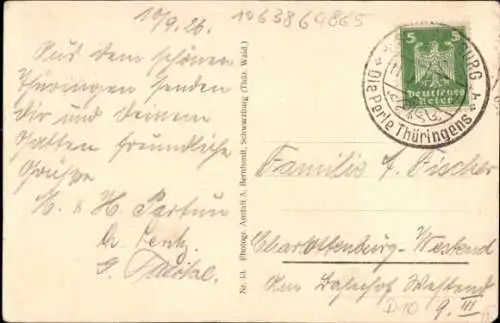 10/9.26
1063869865
Aus dem schönen
Thüringen senden
Dir und Deinem
Gatten freundliche
Grüße
H. Partun
Lentz
Nr. 13. Photogr. Anstalt A. Bernhardt, Schwarzburg (Thür. Wald.)
5 5
Deutsches
Reich
BURG
Die Perle Thüringens
Familie F. Fischer
Charlottenburg-Westend
Am Bahnhof Westend
D10 9. III